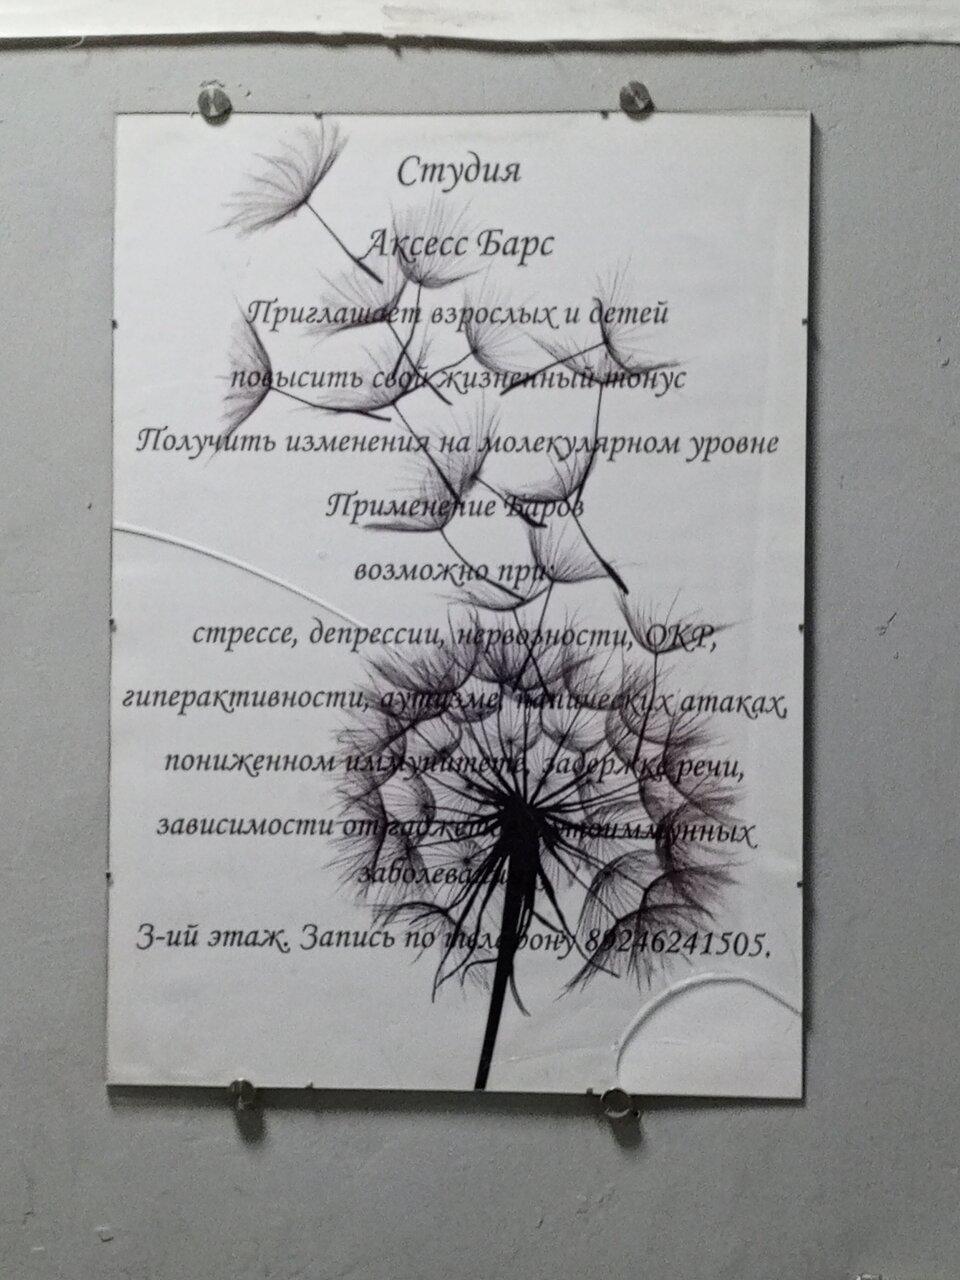 Студия
Аксесс Барс
Приглашает взрослых и детей
повысить свой жизненный тонус
Получить изменения на молекулярном уровне
Применение Баров
возможно при:
стрессе, депрессии, нервозности, ОКР,
гиперактивности, аутизме, панических атаках,
пониженном иммунитете, задержке речи,
зависимости от гаджетов, аутоиммунных
заболеваниях
3-ий этаж. Запись по телефону 89246241505.